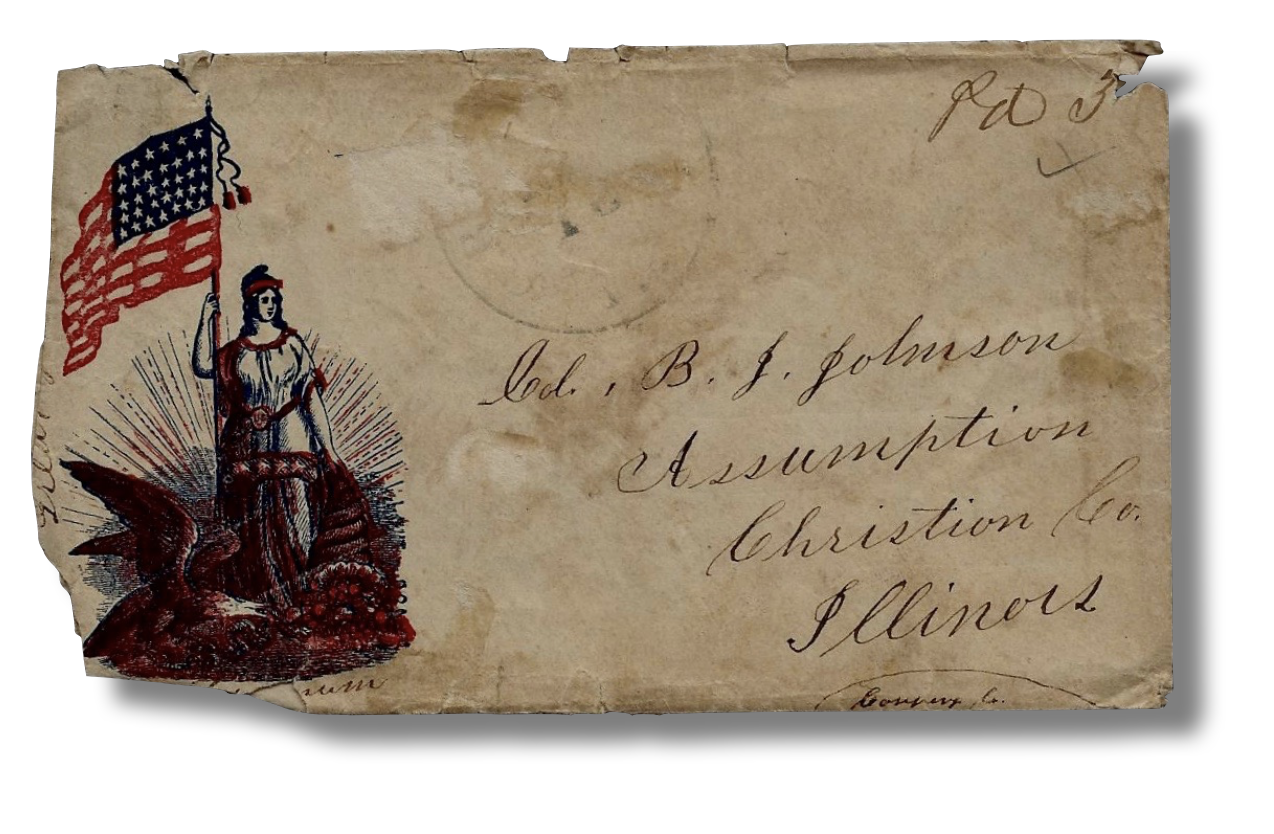 Pd 3
Col. B. J. Johnson
Assumption
Christion Co.
Illinois
Company